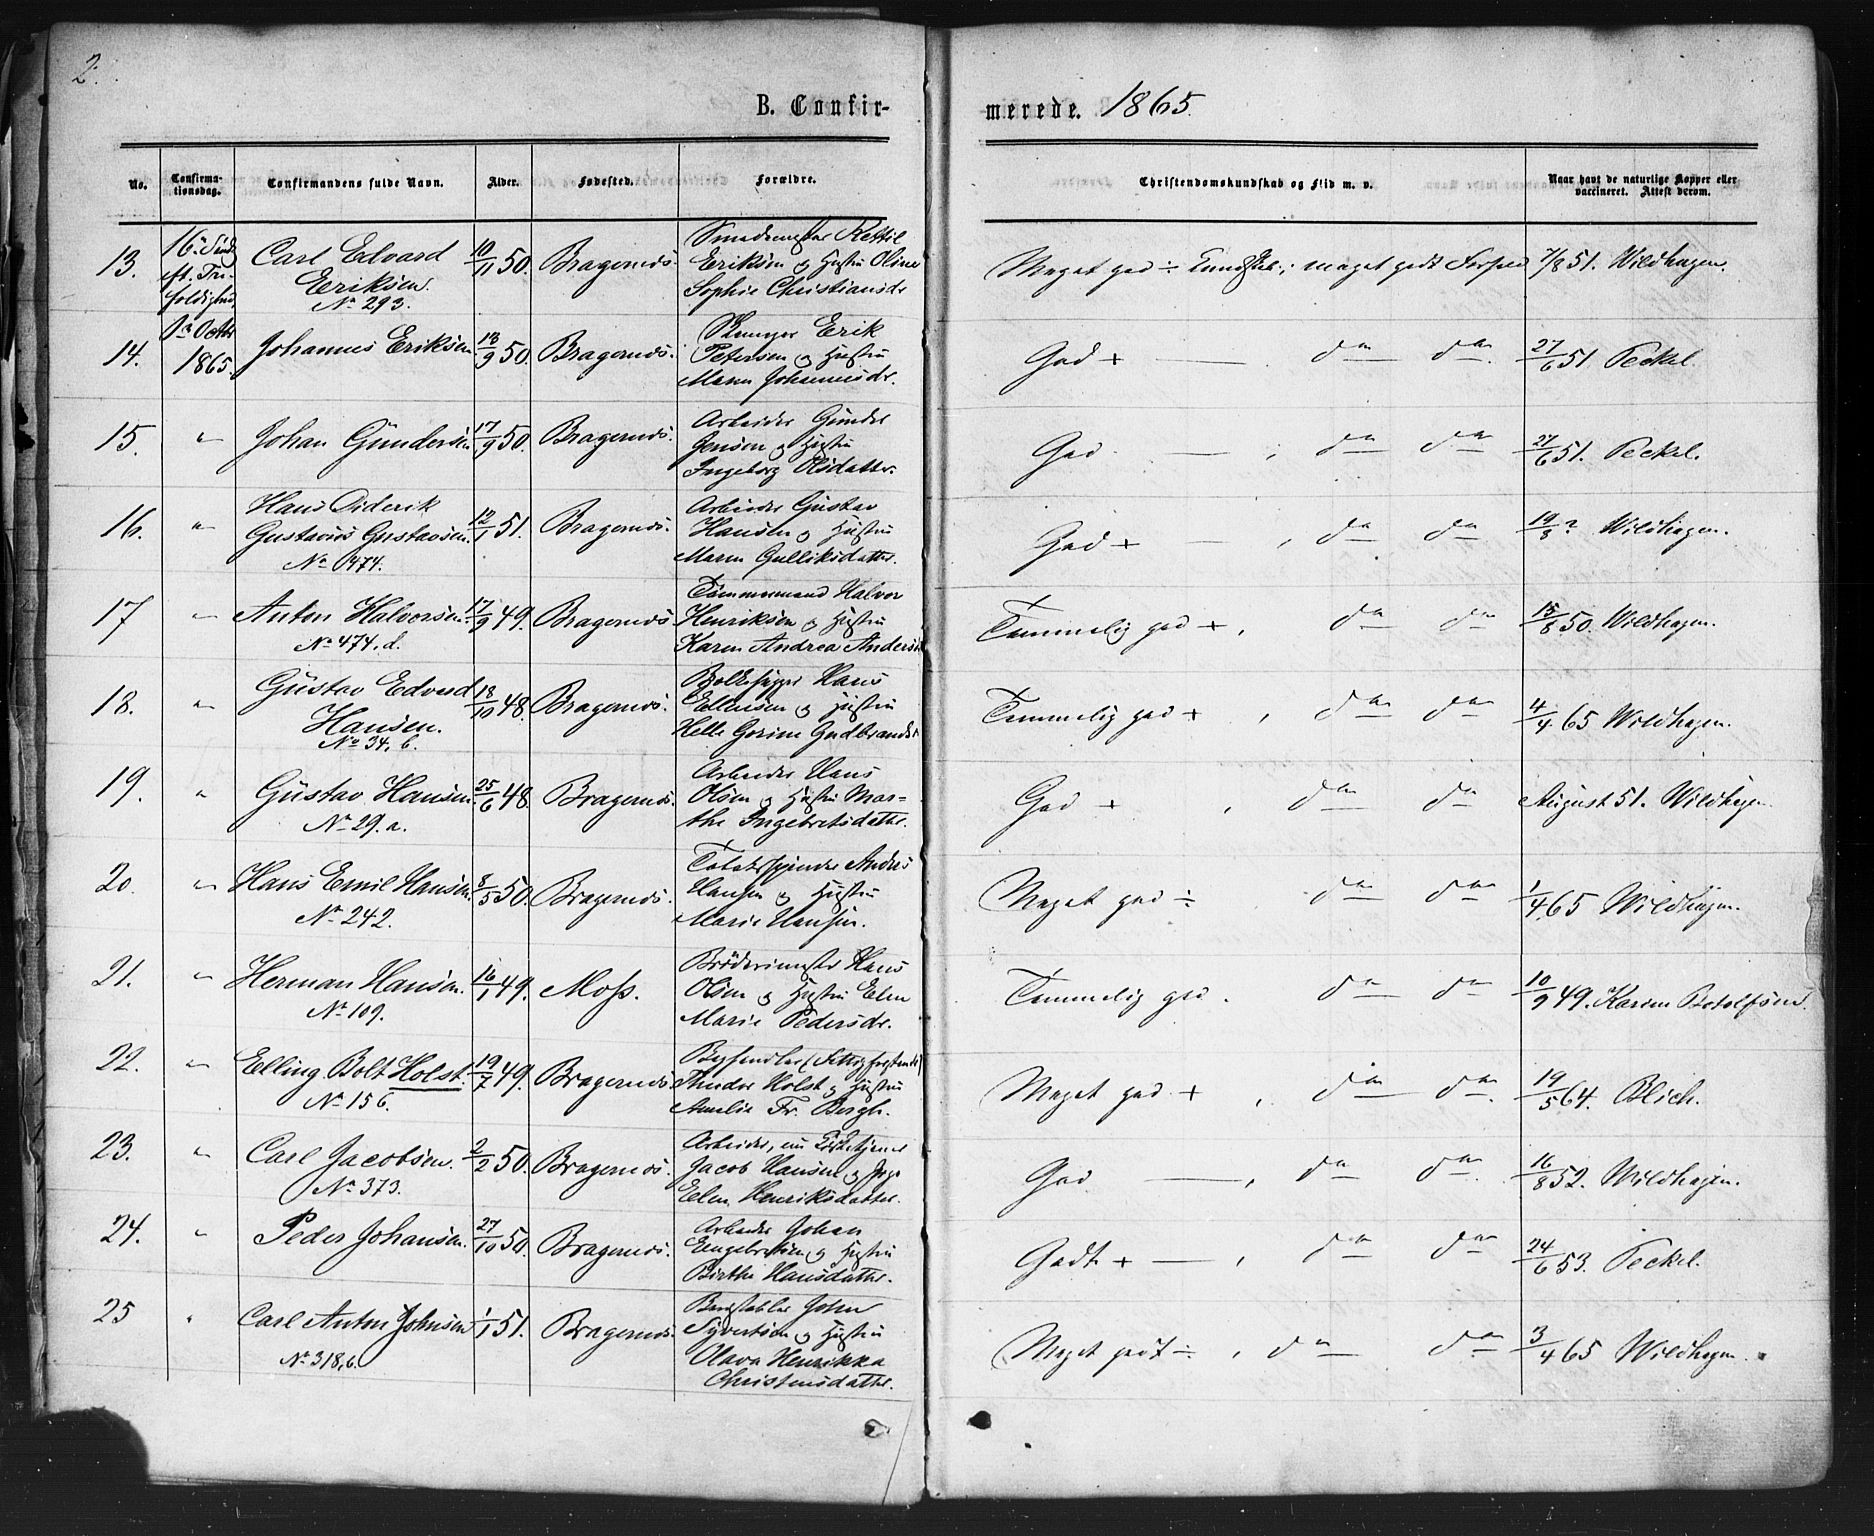 2.
B. Confir-
merede. 1865.
No.
Confirma-
tionsdag.
Confirmandens fulde Navn.
Alder.
Fødested.
Forældre.
Christendomskundskab og Flid m. v.
Naar havt de naturlige Kopper eller
vaccineret. Attest derom.
13. 16de Sønd. Carl Edvard 10/11 50. Bragernæs.
eft. Tre- Eriksen.
foldighed No 293.
Smedmester Kettil
Eriksen og Hustru Oline
Sophie Christiansdr
Meget god ÷ Kundskab; meget godt Forhold 7/8 51. Wildhagen.
1ste Octbr
14. 1865. Johannes Eriksen 13/9 50. Bragernæs.
Erik
Petersen og Hustru
Maren Johannesdr.
God + — do do. 27/6 51 Peckel.
15. " Johan Gundersen 17/9 50. Bragernæs.
Arbeider Gunder
Jensen og Hustru
Ingeborg Olsdatter.
God. — ; do do 27/6 51. Peckel.
16. " Hans Diderik
Gustavus Gustavsen. 12/1 51. Bragernæs.
No 474.
Arbeider Gustav
Hansen og Hustru
Maren Gulliksdatter.
God + — , do do 19/8 ? Wildhagen.
17 " Anton Halvorsen. 17/9 49. Bragernæs.
No 474. d.
Tømmermand Halvor
Henriksen og Hustru
Karen Andrea Anders
Temmelig god + , do do 15/8 50. Wildhagen.
18. " Gustav Edvard 18/10 48. Bragernæs.
Hansen.
No 34, b.
Hans
Ellensen og Hustru
Helle Gorine Gudbrandsd
Temmelig god + , do do 4/4 65 Wildhagen.
19. " Gustav Hansen 25/6 48 Bragernæs.
No 29. a.
Arbeider Hans
Olsen og Hustru Mar=
the Ingebretsdatter.
God + , do do August 51. Wildhagen
20. " Hans Emil Hansen. 8/5 50. Bragernæs.
No 242.
Tobakspinder Anders
Hansen og Hustru
Marie Hansen.
Meget god ÷ do do 1/4 65 Wildhagen.
21. " Herman Hansen. 16/1 49. Moss.
No 109.
Hans
Olsen og Hustru Elen
Marie Pedersdr.
Temmelig god. do do 10/9 49. Karen Botolfsen.
22. " Elling Bolt Holst. 19/7 49. Bragernæs
No 156.
Theodor Holst og Hustru
Amelie Fr. Bergh.
Meget god + , do do. 19/5 64. Blich.
23. " Carl Jacobsen. 2/2 50. Bragernæs.
No 373.
Arbeider, nu
Jacob Hansen og
Elen Henriksdatter.
God — , do do. 16/8 52. Wildhagen.
24. " Peder Johansen. 27/10 50. Bragernæs.
Arbeider Johan
Engebretsen og Hustru
Birthe Hansdatter.
Godt + — , do do 24/6 53. Peckel.
25 " Carl Anton Johnsen 1/1 51. Bragernæs.
No 318, b.
John
Syvertsen og Hustru
Olava Henrikka
Christensdatter.
Meget godt ÷ , do do 3/4 65 Wildhagen.